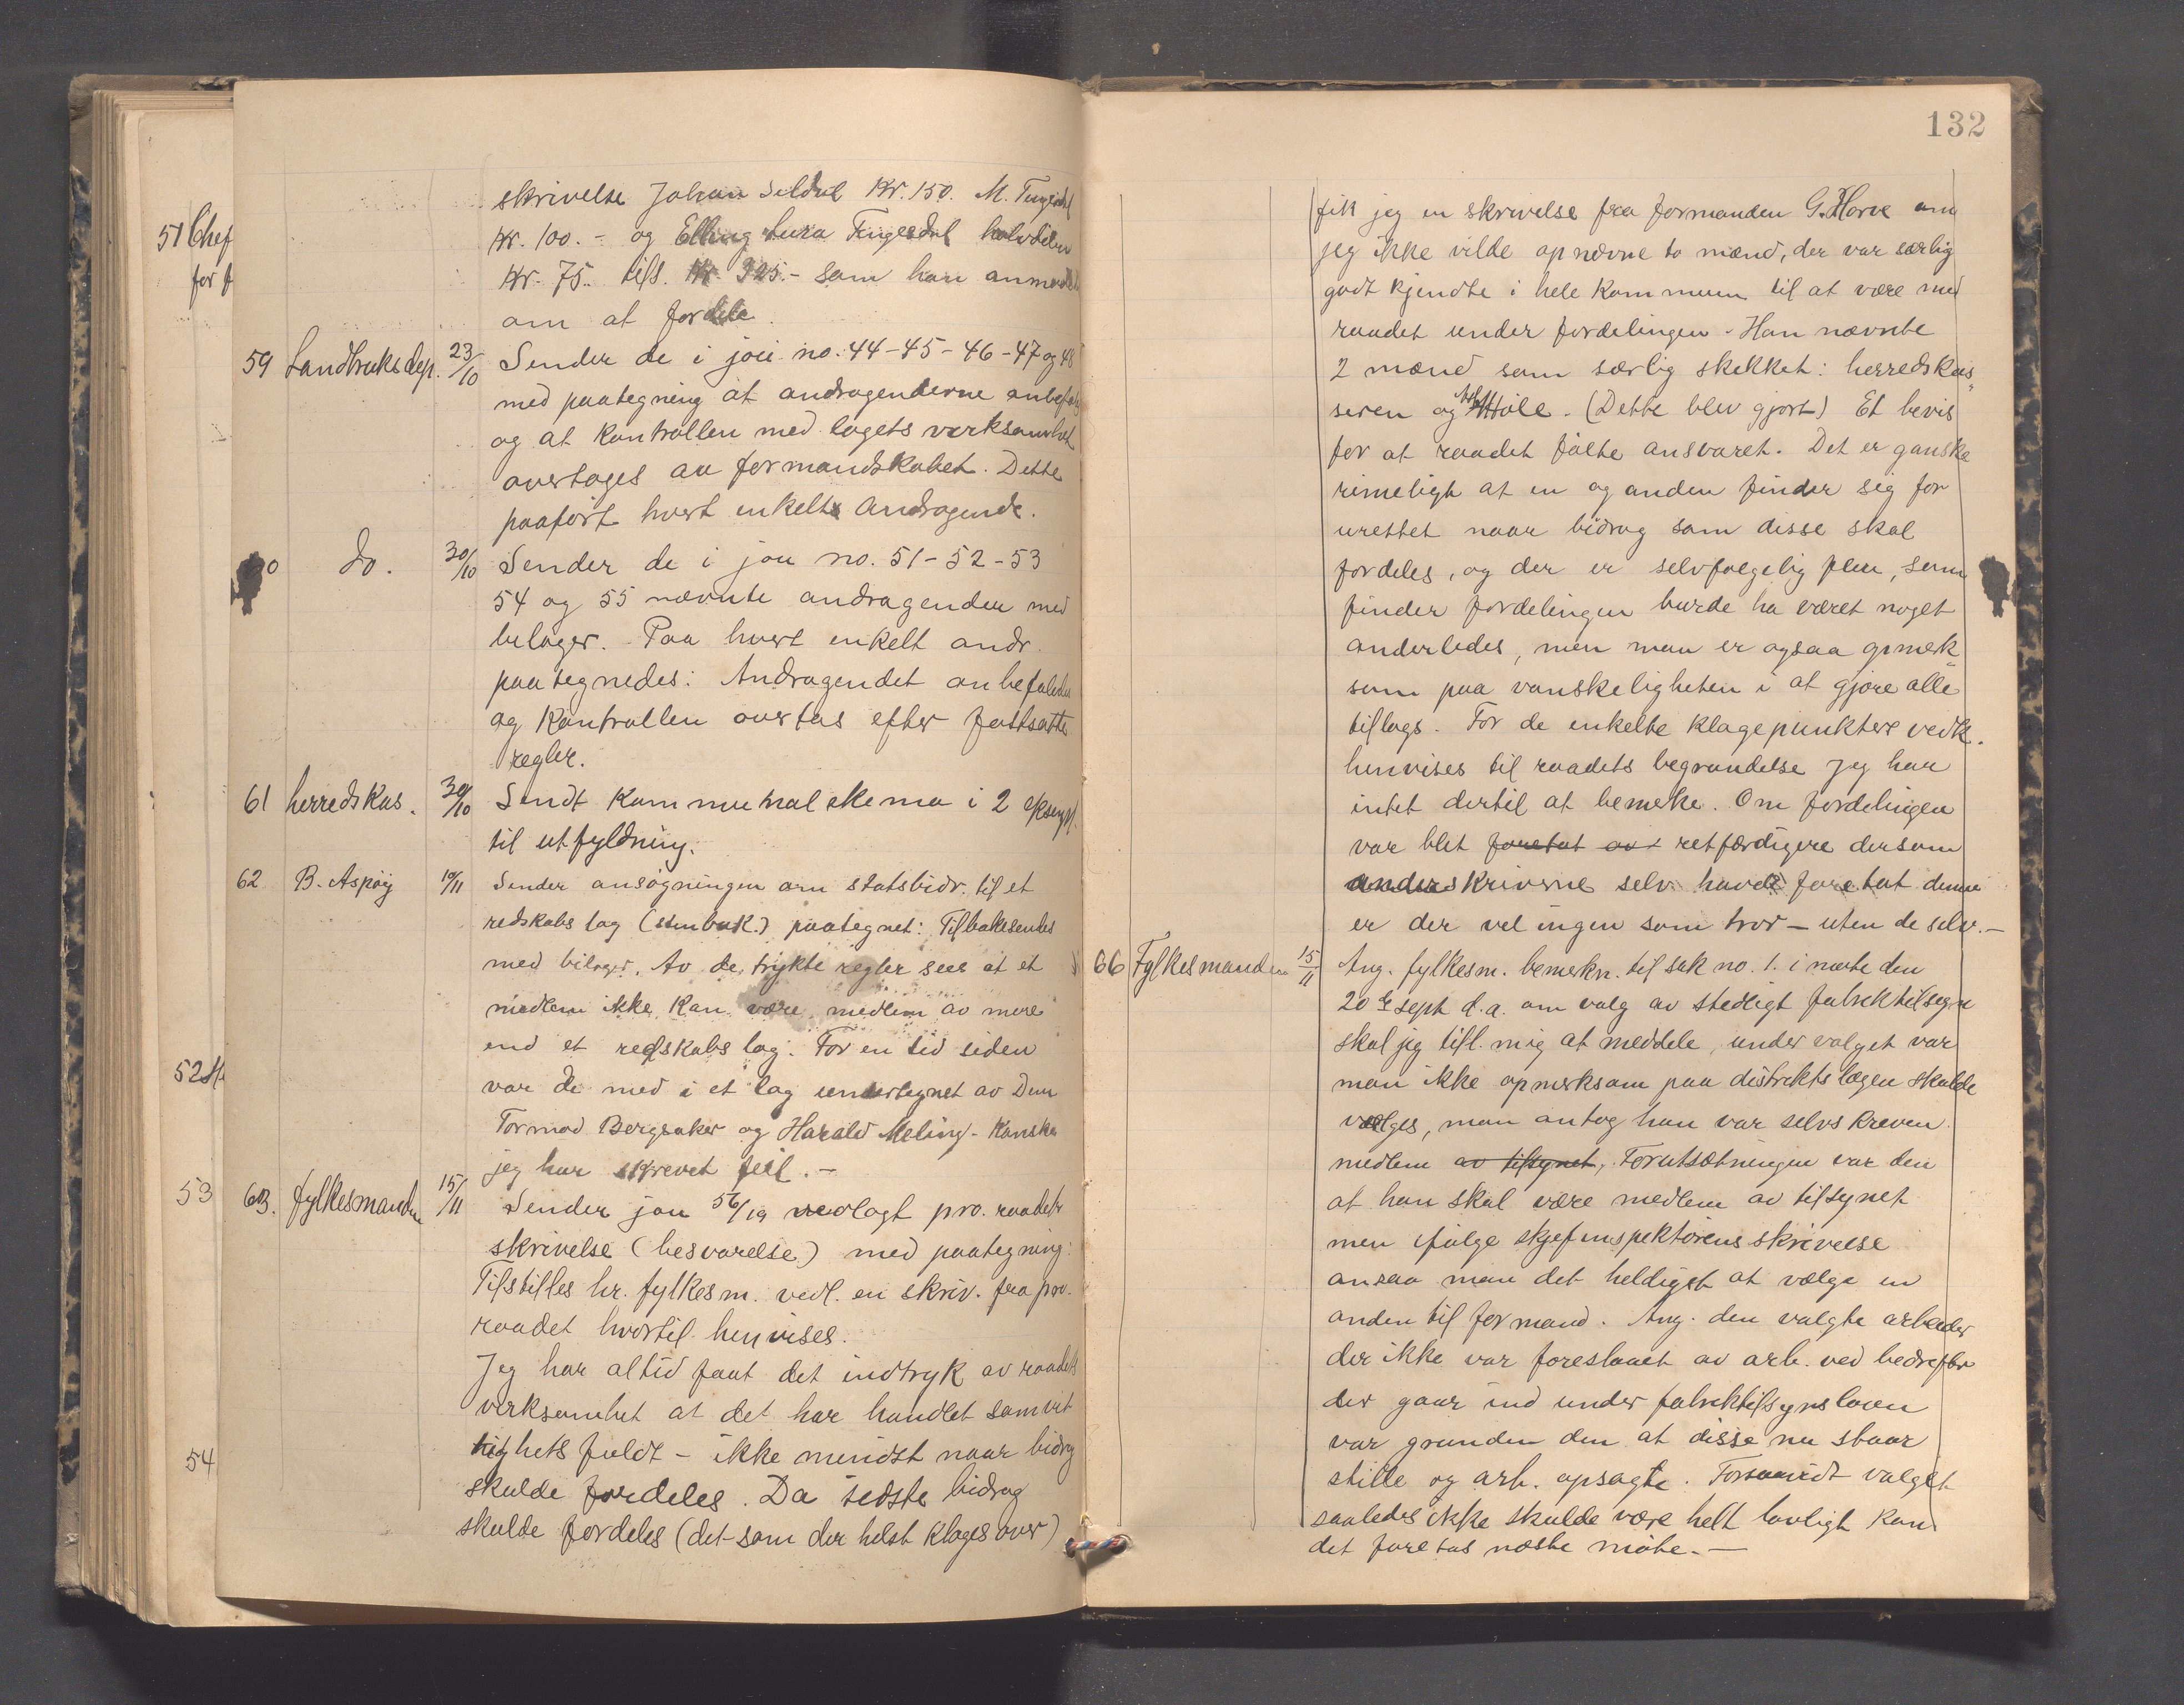 51 Chef
for f
52
53
54
skrivelse Johan Seldal Kr. 150. M. Tengesdal
Kr. 100.- og Elling Lura Tengesdal halvdelen
Kr. 75.. tils. Kr 325.- som han anmodes
om at fordele.
59 Landbruksdep. 23/10 Sender de i jou no. 44-45-46-47 og 48
med paategning at andragenderne anbefales
og at kontrollen med lagets verksamhet
overtages av formandskabet. Dette
paaført hvert enkelte andragende.
60 do. 30/10 Sender de i jou no. 51-52-53
54 og 55 nævnte andragender med
bilager. Paa hvert enkelt andr.
paategnedes: Andragendet anbefales
og kontrollen overtas efter fastsatte
regler.
61 herredskas. 30/10 Sendt kommunalskema i 2 eksempl.
til utfyldning.
62 B. Aspøy 10/11 Sender ansøgningen om statsbidr. til et
redskabslag (stenbuk.) paategnet: Tilbakesendes
med bilager. Av de trykte regler sees at et
medlem ikke kan være medlem av mere
end et redskabslag. For en tid siden
var de med i et lag undertegnet av Dem
Tormod Bergsaker og Harald Meling. Kanske
jeg har skrevet feil.-
63. fylkesmanden 15/11 Sender jou 56/19 vedlagt pro. raadets
skrivelse (besvarelse) med paategning:
Tilstilles hr. fylkesm. vedl. en skriv. fra pro.
raadet hvortil henvises.
Jeg har altid faat det indtryk av raadets
verksamhet at det har handlet samvit
tighetsfuldt - ikke mindst naar bidrag
skulde fordeles. Da sidste bidrag
skulde fordeles (det som der helst klages over)
132
fik jeg en skrivelse fra formanden G. Horve om
jeg ikke vilde opnævne to mænd, der var særlig
godt kjendte i hele kommunen til at være med
raadet under fordelingen. Han nævnte
2 mænd som særlig skikket: herredskas„
seren og Høle. (Dette blev gjort) Et bevis
for at raadet følte ansvaret. Det er ganske
rimeligt at en og anden finder sig for
urettet naar bidrag som disse skal
fordeles, og der er selvfølgelig flere, som
finder fordelingen burde ha været noget
anderledes, men man er ogsaa opmerk
som paa vanskeligheten i at gjøre alle
tillags. For de enkelte klagepunktere vedk.
henvises til raadets begrundelse jeg har
intet dertil at bemerke. Om fordelingen
var blit foretat av retfærdigere dersom
underskriverne selv havde foretat denne
er der vel ingen som tror - uten de selv.-
66 Fylkesmanden 15/11 Ang. fylkesm. bemerkn. til sak no. 1. i møte den
20de sept d.a. om valg av stedligt fabriktilsyn
skal jeg till. mig at meddele, under valget var
man ikke opmerksom paa distriktslægen skulde
vælges, man antog han var selvskreven
medlem av tilsynet, Forutsætningen var den
at han skal være medlem av tilsynet
men ifølge skjefinspektørens skrivelse
ansaa man det heldigst at vælge en
anden til formand. Ang. den valgte arbeider
der ikke var foreslaaet av arb. ved bedrifter
der gaar ind under fabriktilsynsloven
var grunden den at disse nu staar
stille og arb. opsagte. Forsaavidt valget
saaledes ikke skulde være helt lovligt kan
det foretas næste møte.-